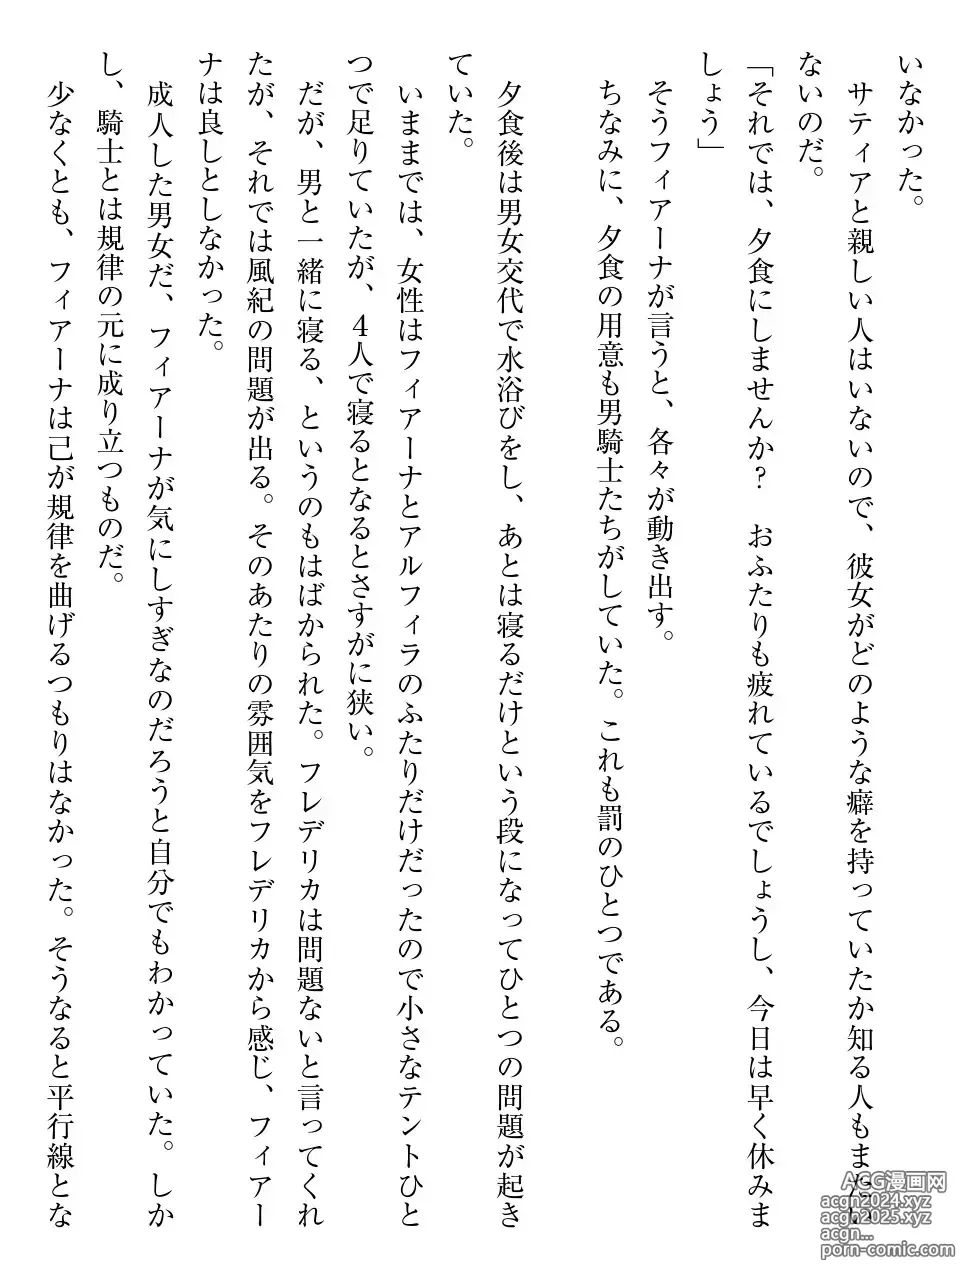 いなかった。
　サティアと親しい人はいないので、彼女がどのような癖を持っていたか知る人もまたい
ないのだ。
「それでは、夕食にしませんか？　おふたりも疲れているでしょうし、今日は早く休みま
しょう」
　そうフィアーナが言うと、各々が動き出す。
　ちなみに、夕食の用意も男騎士たちがしていた。これも罰のひとつである。
　夕食後は男女交代で水浴びをし、あとは寝るだけという段になってひとつの問題が起き
ていた。
　いままでは、女性はフィアーナとアルフィラのふたりだけだったので小さなテントひと
つで足りていたが、４人で寝るとなるとさすがに狭い。
　だが、男と一緒に寝る、というのもはばかられた。フレデリカは問題ないと言ってくれ
たが、それでは風紀の問題が出る。そのあたりの雰囲気をフレデリカから感じ、フィアー
ナは良しとしなかった。
　成人した男女だ、フィアーナが気にしすぎなのだろうと自分でもわかっていた。しか
し、騎士とは規律の元に成り立つものだ。
　少なくとも、フィアーナは己が規律を曲げるつもりはなかった。そうなると平行線とな
ACG漫画网
acgn2024.xyz
acgn2025.xyz
acgn...
porn-comic.com